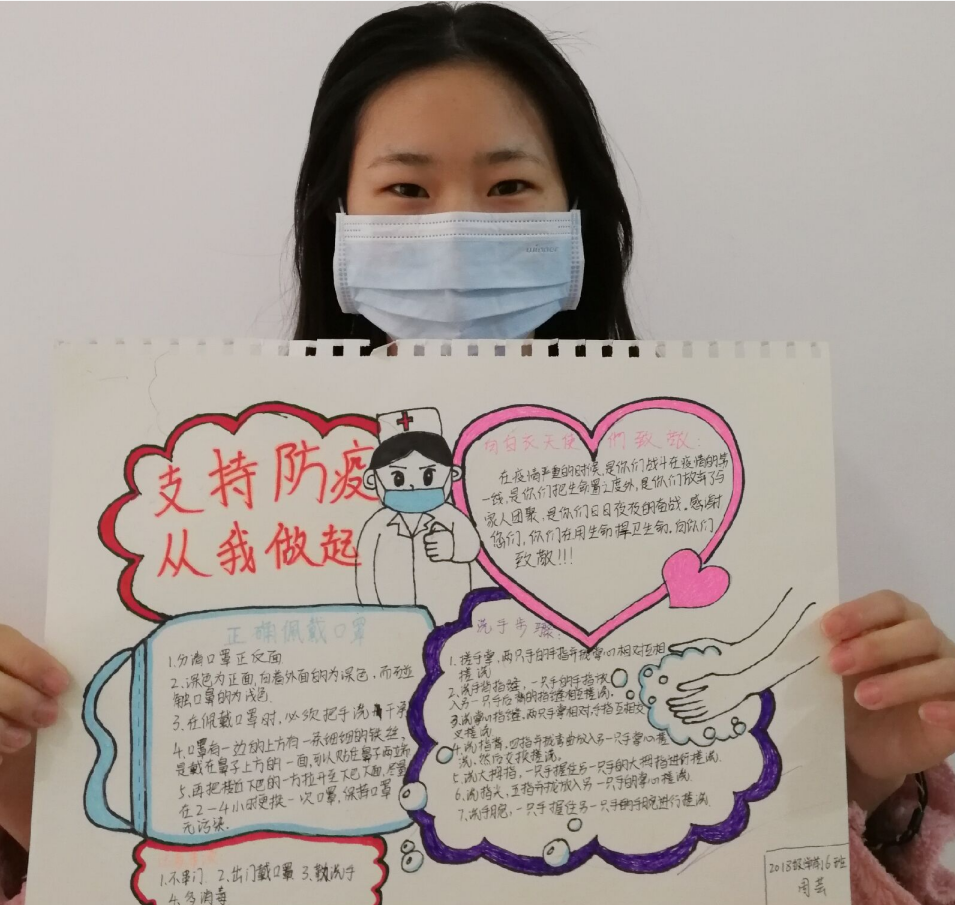 支持防疫
从我做起
向白衣天使们致敬:
在疫情严重的时候,是你们战斗在疫情的第
一线,是你们把生命置之度外,是你们放弃了与
家人团聚,是你们日日夜夜的奋战。感谢
您们,你们在用生命捍卫生命.向你们
致敬!!!
正确佩戴口罩
1.分清口罩正反面
2.深色为正面,向着外面的为深色,而碰
触口鼻的为浅色.
3.在佩戴口罩时,必须把手洗干净
4.口罩有一边的上方有一条细细的铁丝,
是戴在鼻子上方的一面,可以贴在鼻子两端
5.再把褶皱下巴的一方拉开至下巴下面,尽量
在2-4小时更换一次口罩,保持口罩
无污染.
洗手步骤:
1.搓手掌,两只手的手指并拢掌心相对互相
揉洗
2.洗手背指缝,一只手的手指放
入另一只手后背的指缝相互揉洗,
3.洗掌心指缝,两只手掌相对,手指互相交
叉揉洗
4.洗指背,四指并拢弯曲放入另一只手掌心揉
洗,然后交换揉洗.
5.洗大拇指,一只手握住另一只手的大拇指进行揉洗.
6.洗指尖,五指并拢放入另一只手的掌心揉洗.
7.洗手腕,一只手握住另一只手的手腕进行揉洗
1.不串门. 2.出门戴口罩 3.勤洗手
4.多消毒
2018级学前6班
周芸